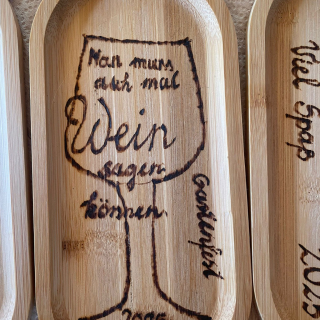 Man muss
auch mal
Wein
sagen
können.
Gartenfest
2025
Viel Spaß
2025